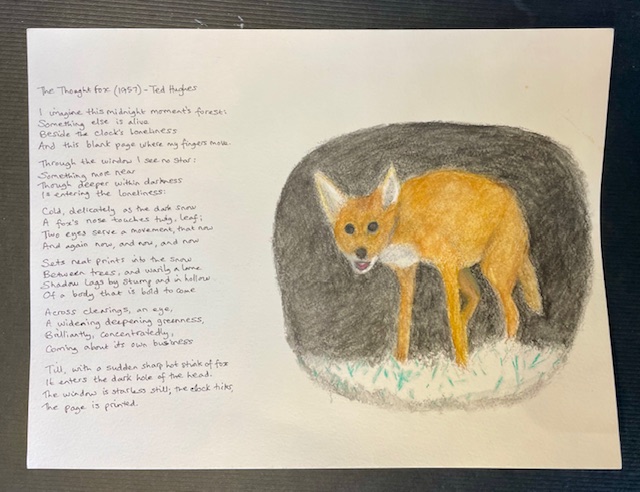 The Thought Fox (1957) - Ted Hughes
I imagine this midnight moment's forest:
Something else is alive
Beside the clock's loneliness
And this blank page where my fingers move.
Through the window I see no star:
Something more near
Though deeper within darkness
Is entering the loneliness:
Cold, delicately as the dark snow
A fox's nose touches twig, leaf;
Two eyes serve a movement, that now
And again now, and now, and now
Sets neat prints into the snow
Between trees, and warily a lame
Shadow lags by stump and in hollow
Of a body that is bold to come
Across clearings, an eye,
A widening deepening greenness,
Brilliantly, concentratedly,
Coming about its own business
Till, with a sudden sharp hot stink of fox
It enters the dark hole of the head.
The window is starless still; the clock ticks,
The page is printed.